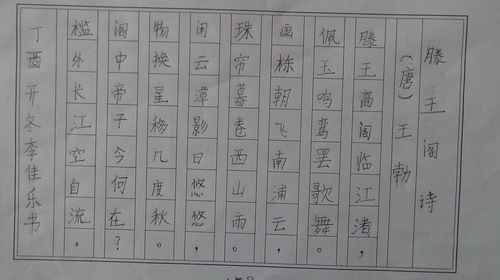 滕王阁诗
（唐）王勃
滕王高阁临江渚，
佩玉鸣鸾罢歌舞。
画栋朝飞南浦云，
珠帘暮卷西山雨。
闲云潭影日悠悠，
物换星移几度秋。
阁中帝子今何在？
槛外长江空自流。
丁酉开冬李佳乐书